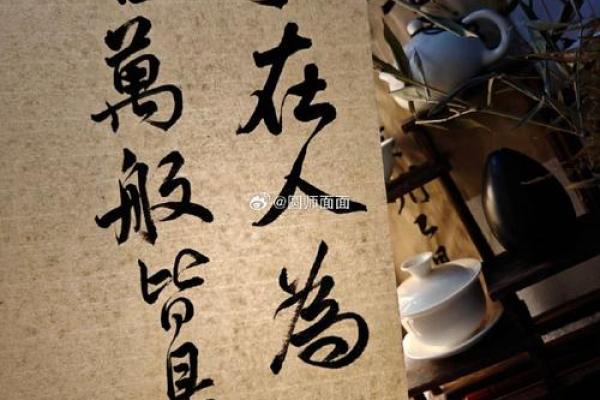 在人為
萬般皆是
@圆师面面